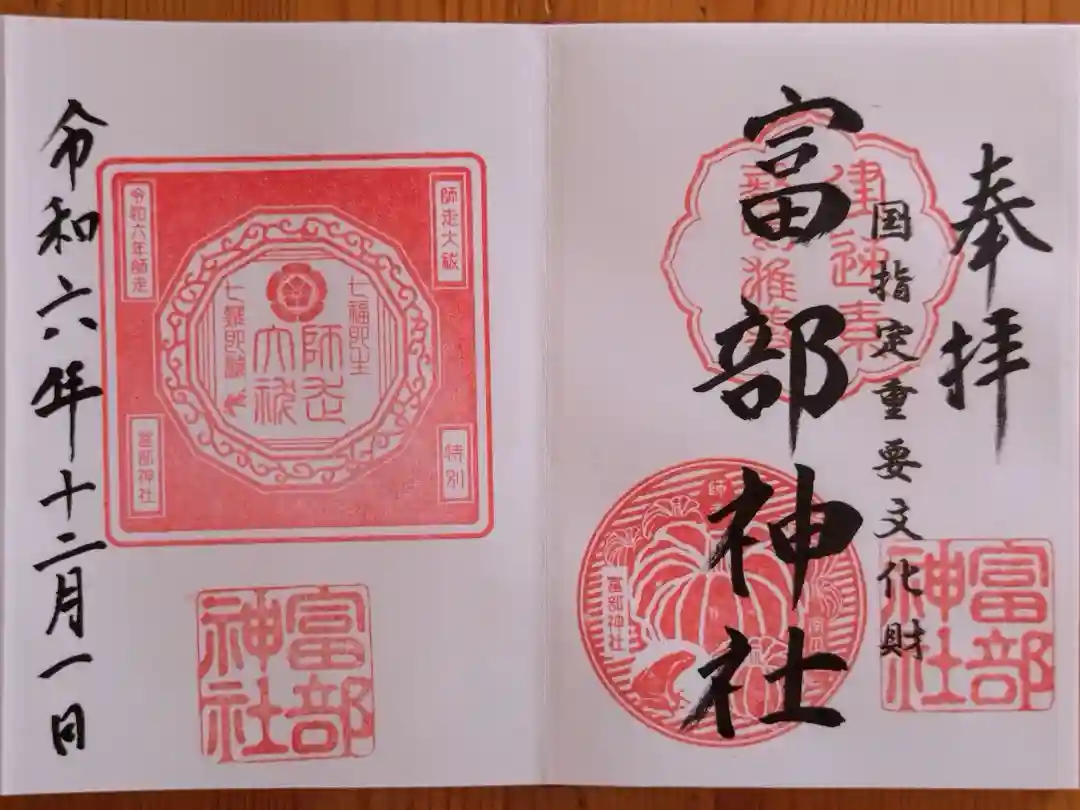 奉拝
国指定重要文化財
富部神社
富部神社
富部神社
師走大祓
特別
七福即生
師走
大祓
七難即滅
令和六年師走
富部神社
富部神社
令和六年十二月一日